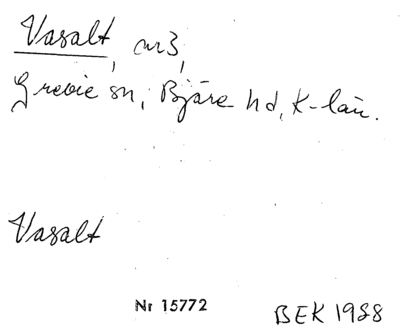 Vasalt, nr 3,
Grevie sn, Bjäre hd, K-län.
Vasalt
Nr 15772
BEK 1988